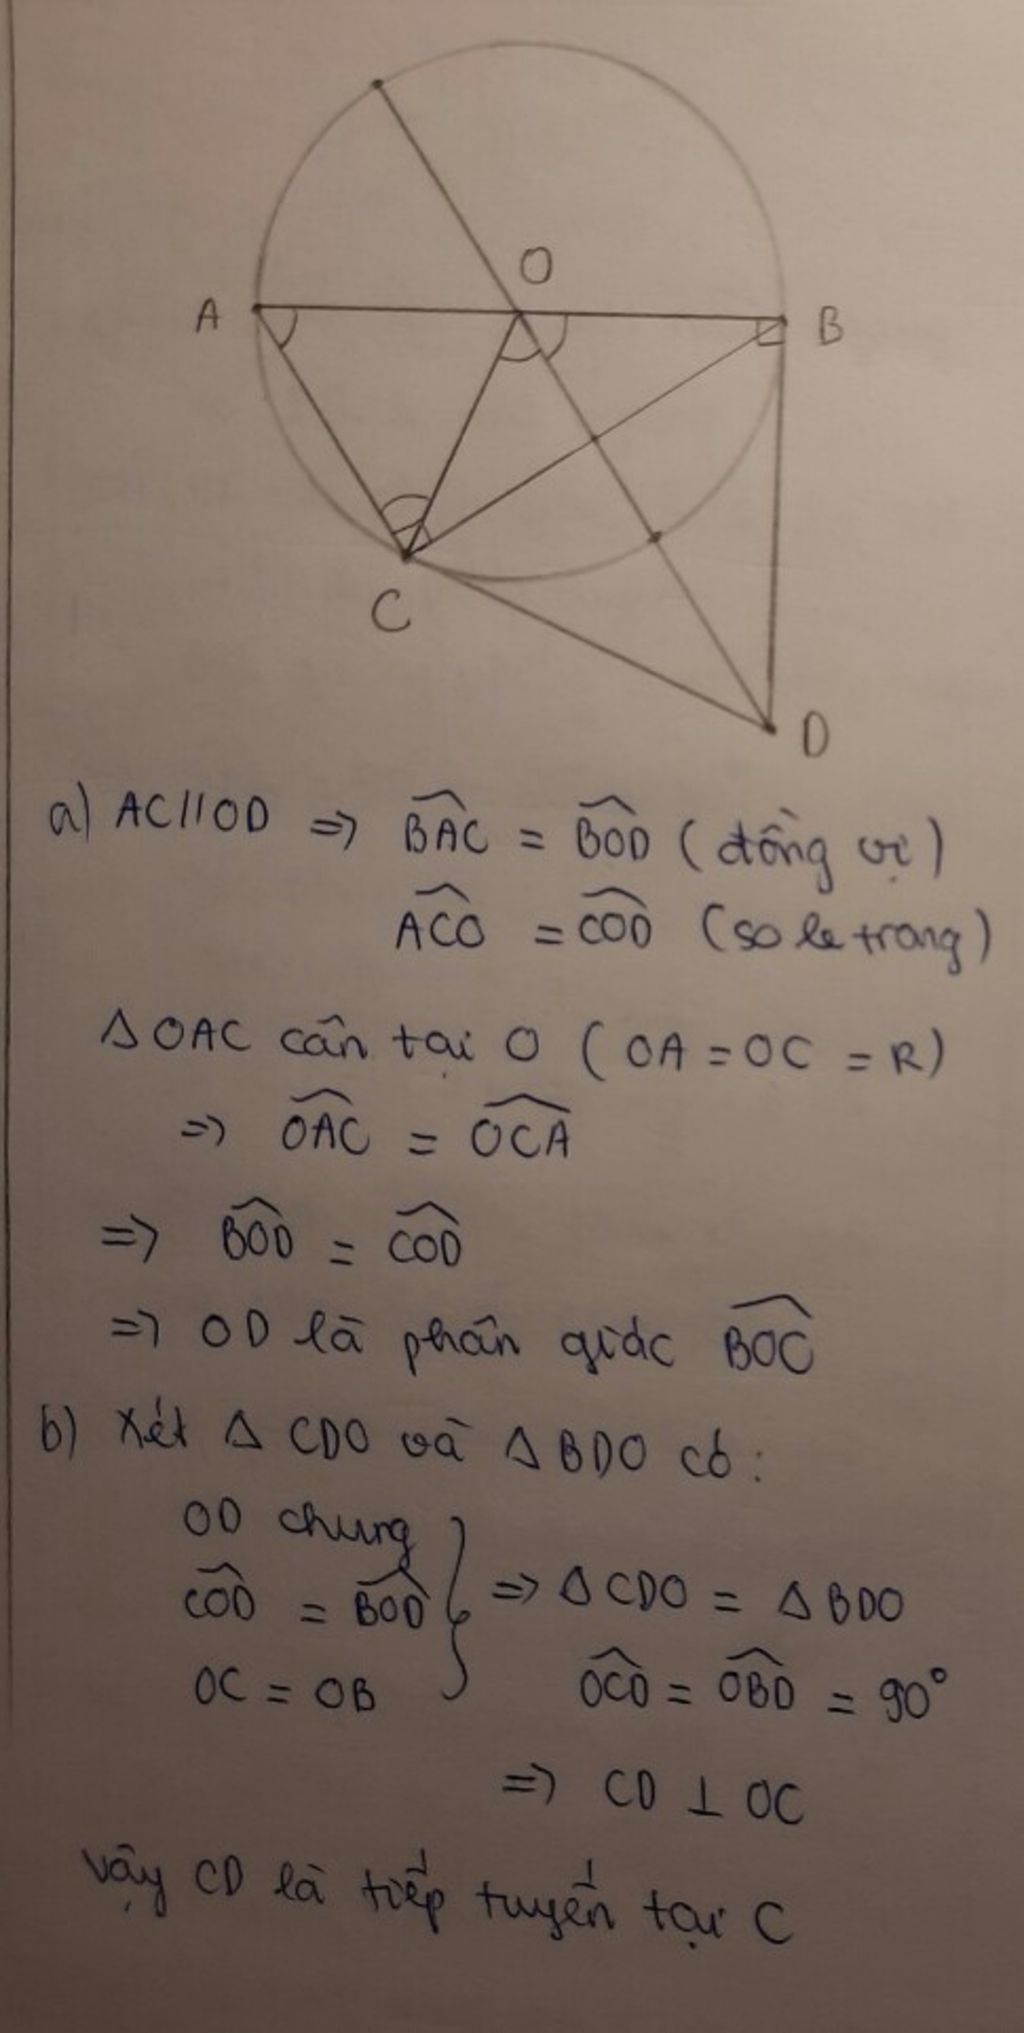 O
A
B
C
D
a) AC//OD => \widehat{BAC} = \widehat{BOD} (đồng vị)
\widehat{ACO} = \widehat{COD} (so le trong)
Δ OAC cân tại O (OA = OC = R)
=> \widehat{OAC} = \widehat{OCA}
=> \widehat{BOD} = \widehat{COD}
=> OD là phân giác \widehat{BOC}
b) Xét Δ CDO và Δ BDO có:
OD chung
\widehat{COD} = \widehat{BOD} } => Δ CDO = Δ BDO
OC = OB \widehat{OCD} = \widehat{OBD} = 90°
=> CD ⊥ OC
Vậy CD là tiếp tuyến tại C